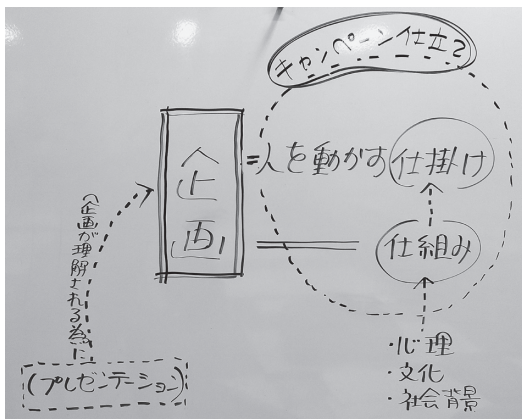 キャンペーン仕立て
企画
=人を動かす仕掛け
仕組み
・心理
・文化
・社会背景
(企画が理解される為に
(プレゼンテーション)